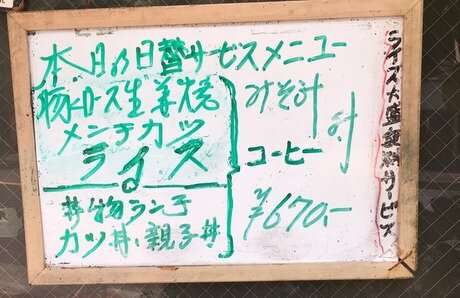 本日の日替サービスメニュー
豚ロース生姜焼
メンチカツ
ライス
丼物ランチ
カツ丼、親子丼
みそ汁
コーヒー
付
¥670,-
ライス大盛無料サービス